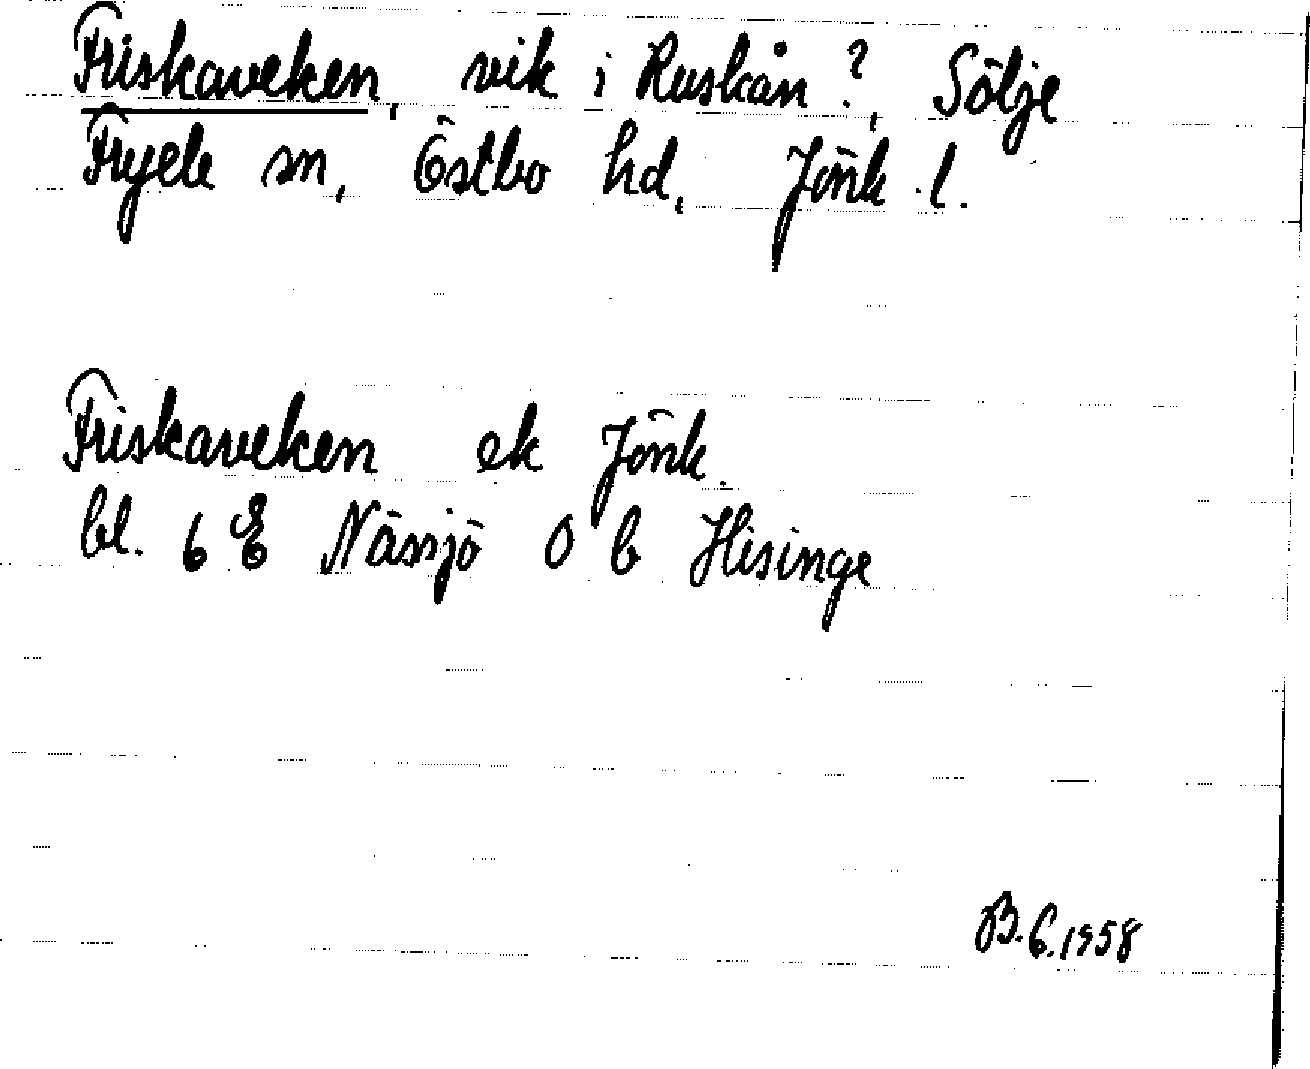 Friskaveken, vik i Ruskån?, Sölje
Fryele sn, Östbo hd, Jönk l.
Friskaveken ek Jönk.
bl. 6 E Nässjö 0 b Hisinge
B.G. 1958